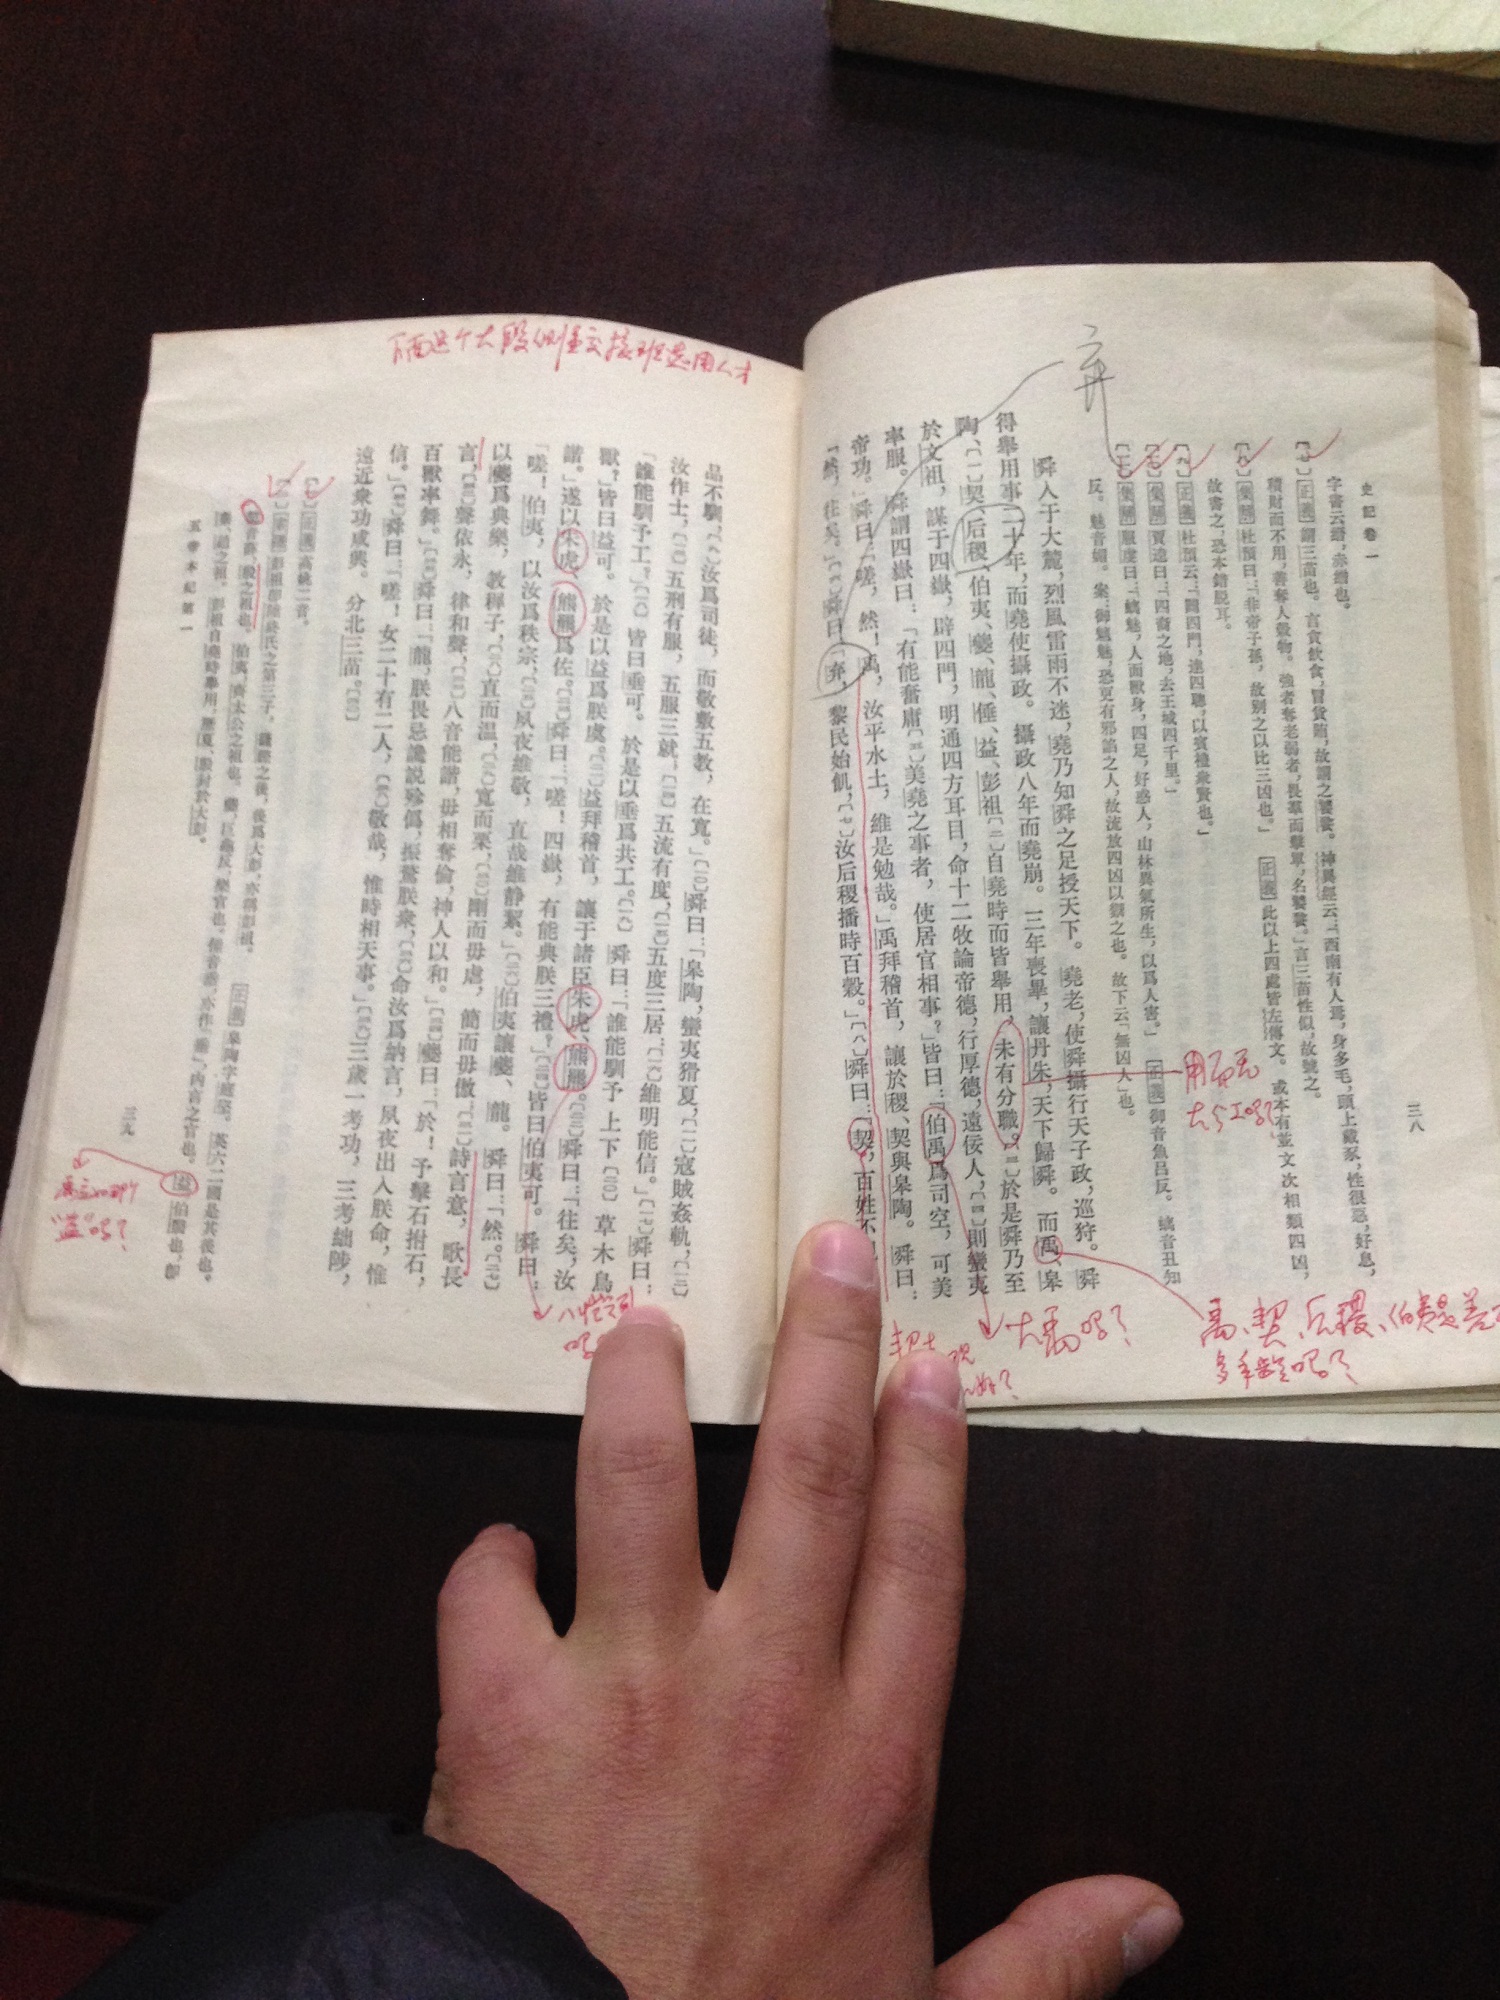 史記卷一
三八
字書云繒，赤繒也。
〔七〕正義謂三苗也。言貪飲食，冒貨賄，故謂之饕餮。神異經云：「西南有人焉，身多毛，頭上戴豕，性很惡，好息，
積財而不用，善奪人穀物。強者奪老弱者，畏羣而擊單，名饕餮。」言三苗性似，故號之。
〔八〕集解杜預曰：「非帝子孫，故別之以比三凶也。」正義此以上四處皆左傳文。或本有並文次相類四凶，
故書之，恐本錯脫耳。
〔九〕正義杜預云：「闢四門，達四聰，以賓禮衆賢也。」
〔一〇〕集解賈逵曰：「四裔之地，去王城四千里。」
〔一一〕集解服虔曰：「螭魅，人面獸身，四足，好惑人，山林異氣所生，以爲人害。」正義御音魚呂反。螭音丑知
反。魅音媚。案：御魑魅，恐更有邪諂之人，故流放四凶以禦之也。故下云「無凶人」也。
舜入于大麓，烈風雷雨不迷，堯乃知舜之足授天下。堯老，使舜攝行天子政，巡狩。舜
得舉用事二十年，而堯使攝政。攝政八年而堯崩。三年喪畢，讓丹朱，天下歸舜。而禹、皋
陶、〔一〕契、后稷、伯夷、夔、龍、倕、益、彭祖〔二〕自堯時而皆舉用，未有分職。〔三〕於是舜乃至
於文祖，謀于四嶽，辟四門，明通四方耳目，命十二牧論帝德，行厚德，遠佞人，〔四〕則蠻夷
率服。舜謂四嶽曰：「有能奮庸〔五〕美堯之事者，使居官相事？」皆曰：「伯禹爲司空，可美
帝功。」舜曰：「嗟，然！禹，汝平水土，維是勉哉。」禹拜稽首，讓於稷、契與皋陶。舜曰：
「然，往矣。」〔六〕舜曰：「弃，黎民始飢，〔七〕汝后稷播時百穀。」〔八〕舜曰：「契，百姓不
弃
用而无
大禹吗？
禹、契、后稷、伯夷是差
多年龄吗？
下面这个大段侧重交接班选用人才
品不馴，〔九〕汝爲司徒，而敬敷五教，在寬。」〔一〇〕舜曰：「皋陶，蠻夷猾夏，〔一一〕寇賊姦軌，〔一二〕
汝作士，〔一三〕五刑有服，五服三就；〔一四〕五流有度，〔一五〕五度三居：〔一六〕維明能信。」〔一七〕舜曰：
「誰能馴予工？」〔一八〕皆曰垂可。於是以垂爲共工。〔一九〕舜曰：「誰能馴予上下〔二〇〕草木鳥
獸？」皆曰益可。於是以益爲朕虞。〔二一〕益拜稽首，讓于諸臣朱虎、熊羆。〔二二〕舜曰：「往矣，汝
諧。」遂以朱虎、熊羆爲佐。〔二三〕舜曰：「嗟！四嶽，有能典朕三禮？」〔二四〕皆曰伯夷可。舜曰：
「嗟！伯夷，以汝爲秩宗，〔二五〕夙夜維敬，直哉維静絜。」〔二六〕伯夷讓夔、龍。舜曰：「然。〔二七〕
以夔爲典樂，教稺子，〔二八〕直而温，〔二九〕寬而栗，〔三〇〕剛而毋虐，簡而毋傲；〔三一〕詩言意，歌長
言，〔三二〕聲依永，律和聲，〔三三〕八音能諧，毋相奪倫，神人以和。」〔三四〕夔曰：「於！予擊石拊石，
百獸率舞。」〔三五〕舜曰：「龍，朕畏忌讒說殄僞，振驚朕衆，〔三六〕命汝爲納言，夙夜出入朕命，惟
信。」〔三七〕舜曰：「嗟！女二十有二人，〔三八〕敬哉，惟時相天事。」〔三九〕三歲一考功，三考絀陟，
遠近衆功咸興。分北三苗。〔四〇〕
〔一〕正義高姚二音。
〔二〕索隱彭祖即陸終氏之第三子，籛鏗之後，後爲大彭，亦稱彭祖。正義皋陶字庭堅。英六二國是其後也。
契音薛，殷之祖也。伯夷，齊太公之祖也。夔，巨龜反，樂官也。倕音垂，亦作「垂」，內言之官也。益，伯翳也，即
秦、趙之祖。彭祖自堯時舉用，歷夏、殷封於大彭。
五帝本紀第一
三九
八恺之列
“益”吗？